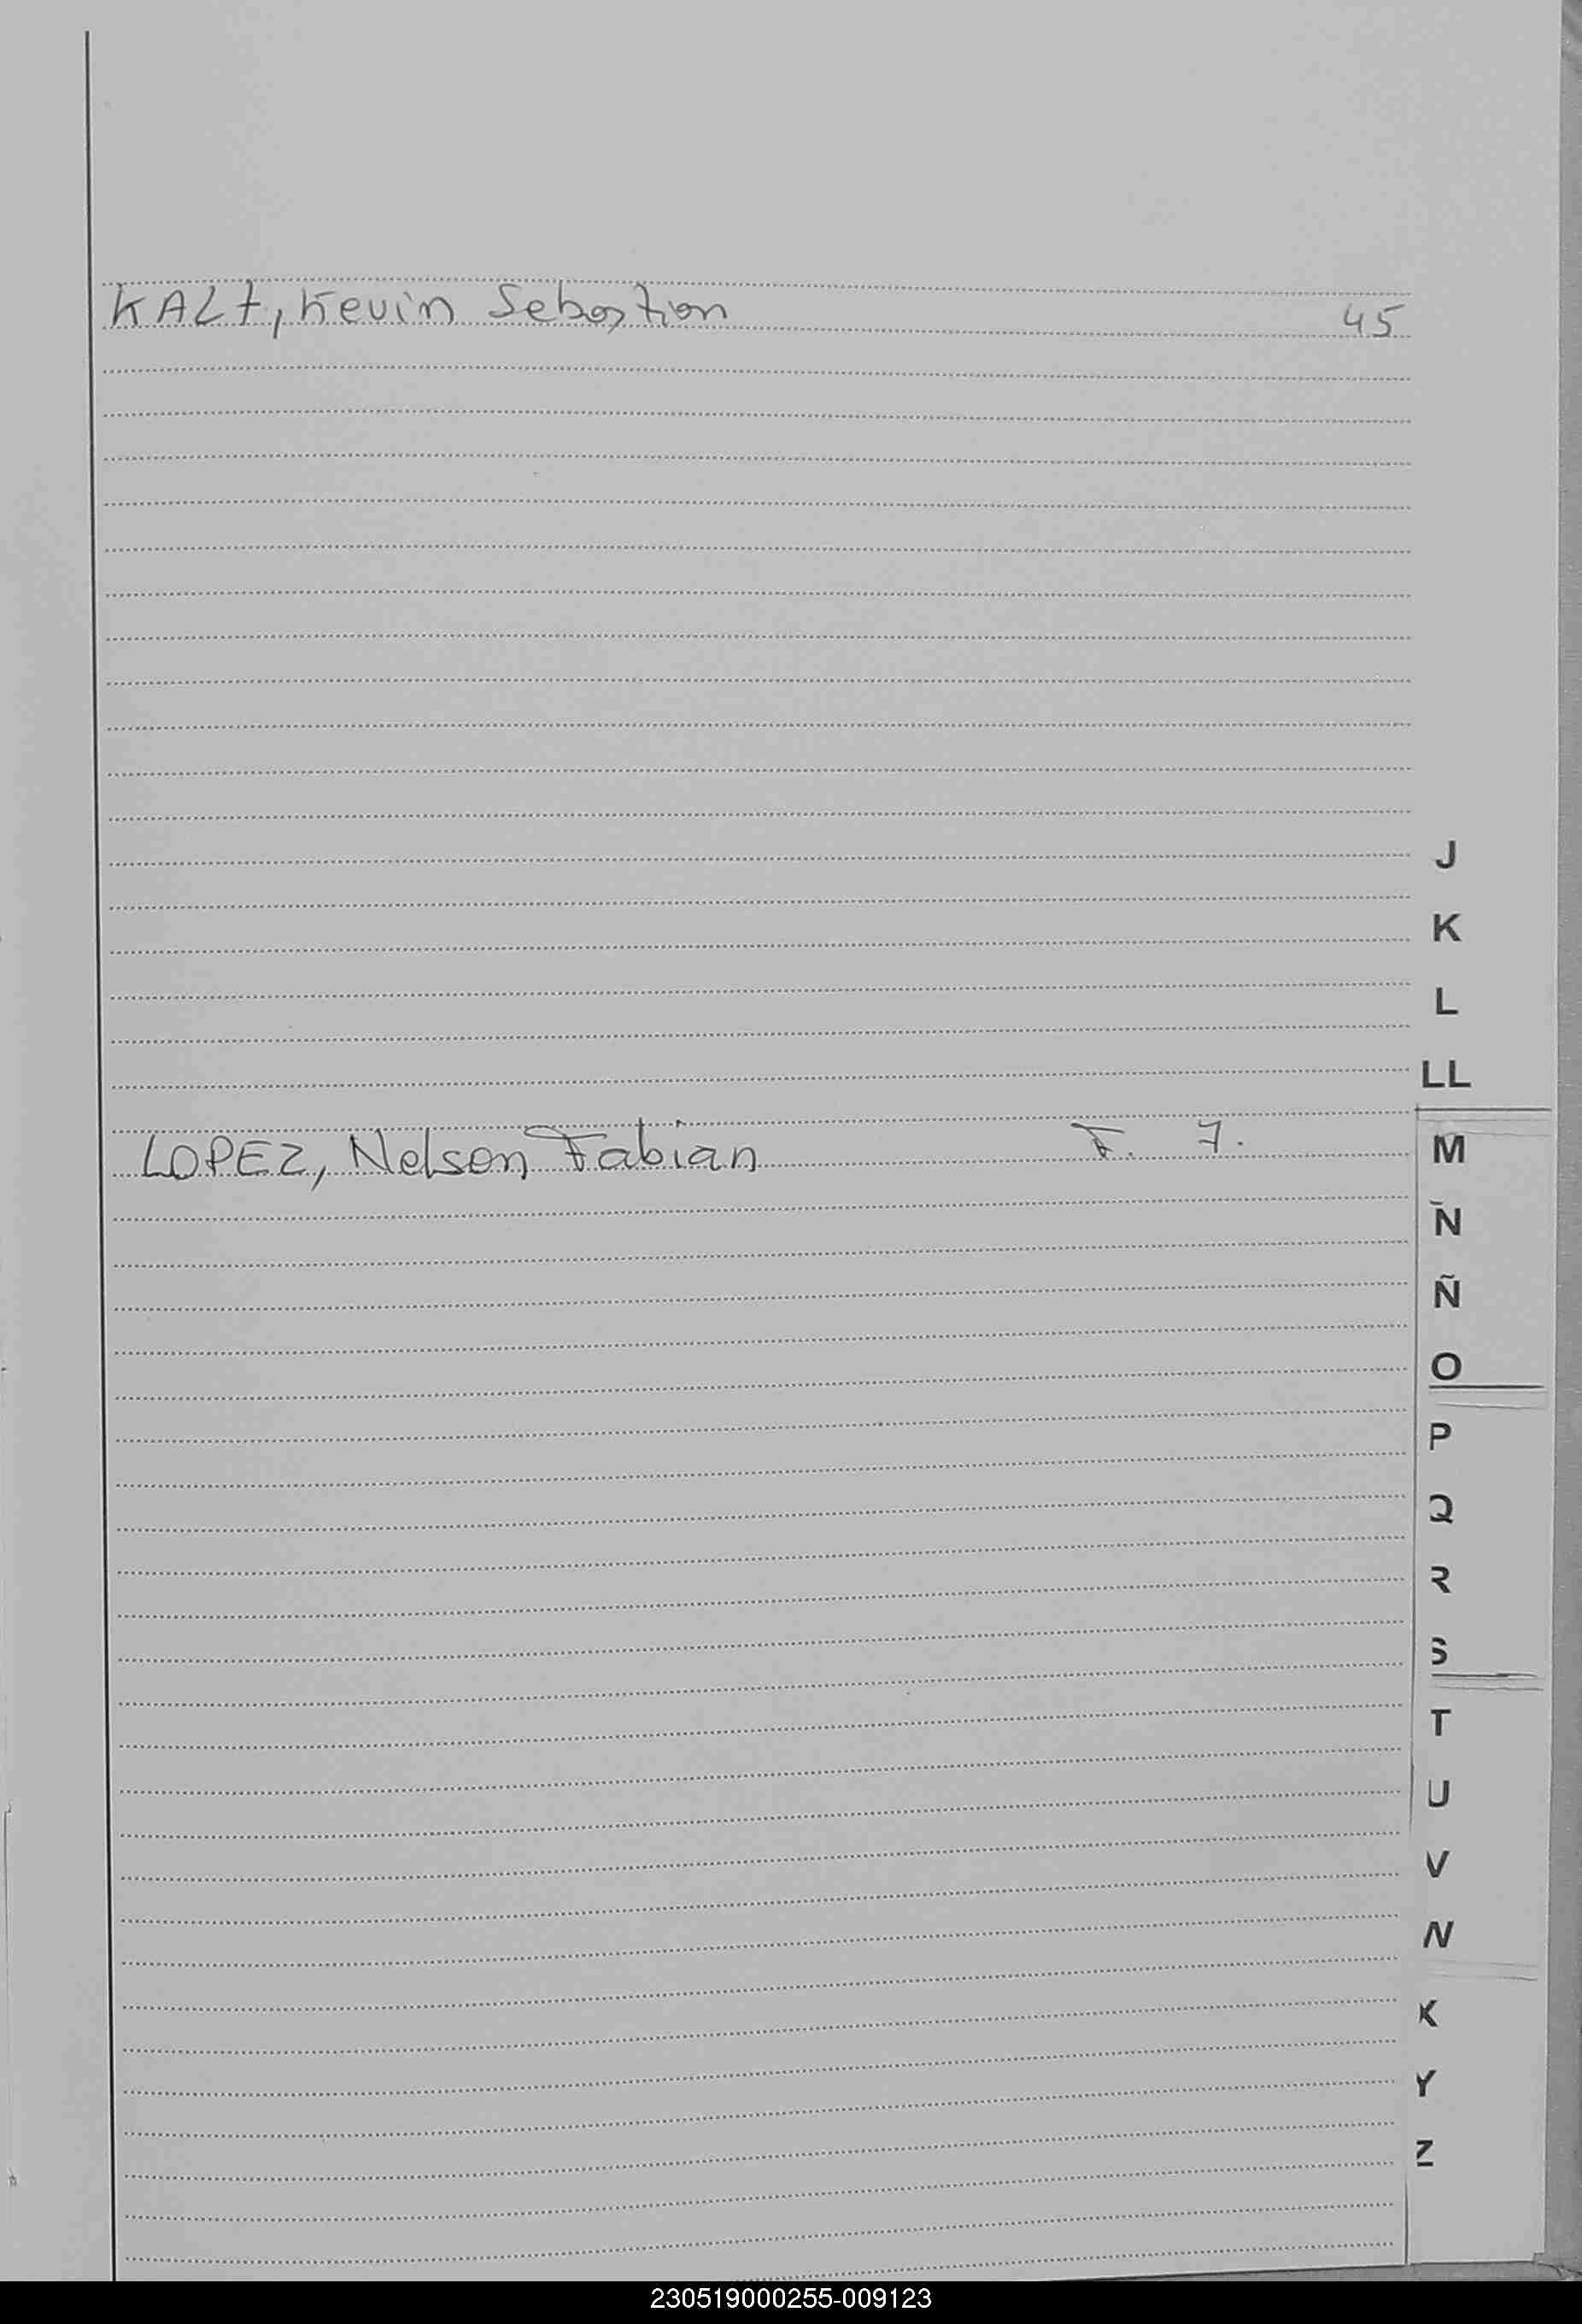 KALt, Kevin Sebastian 45
J
K
L
LL
LOPEZ, Nelson Fabian F. 7.
M
N
Ñ
O
P
Q
R
S
T
U
V
Y
Z
230519000255-009123